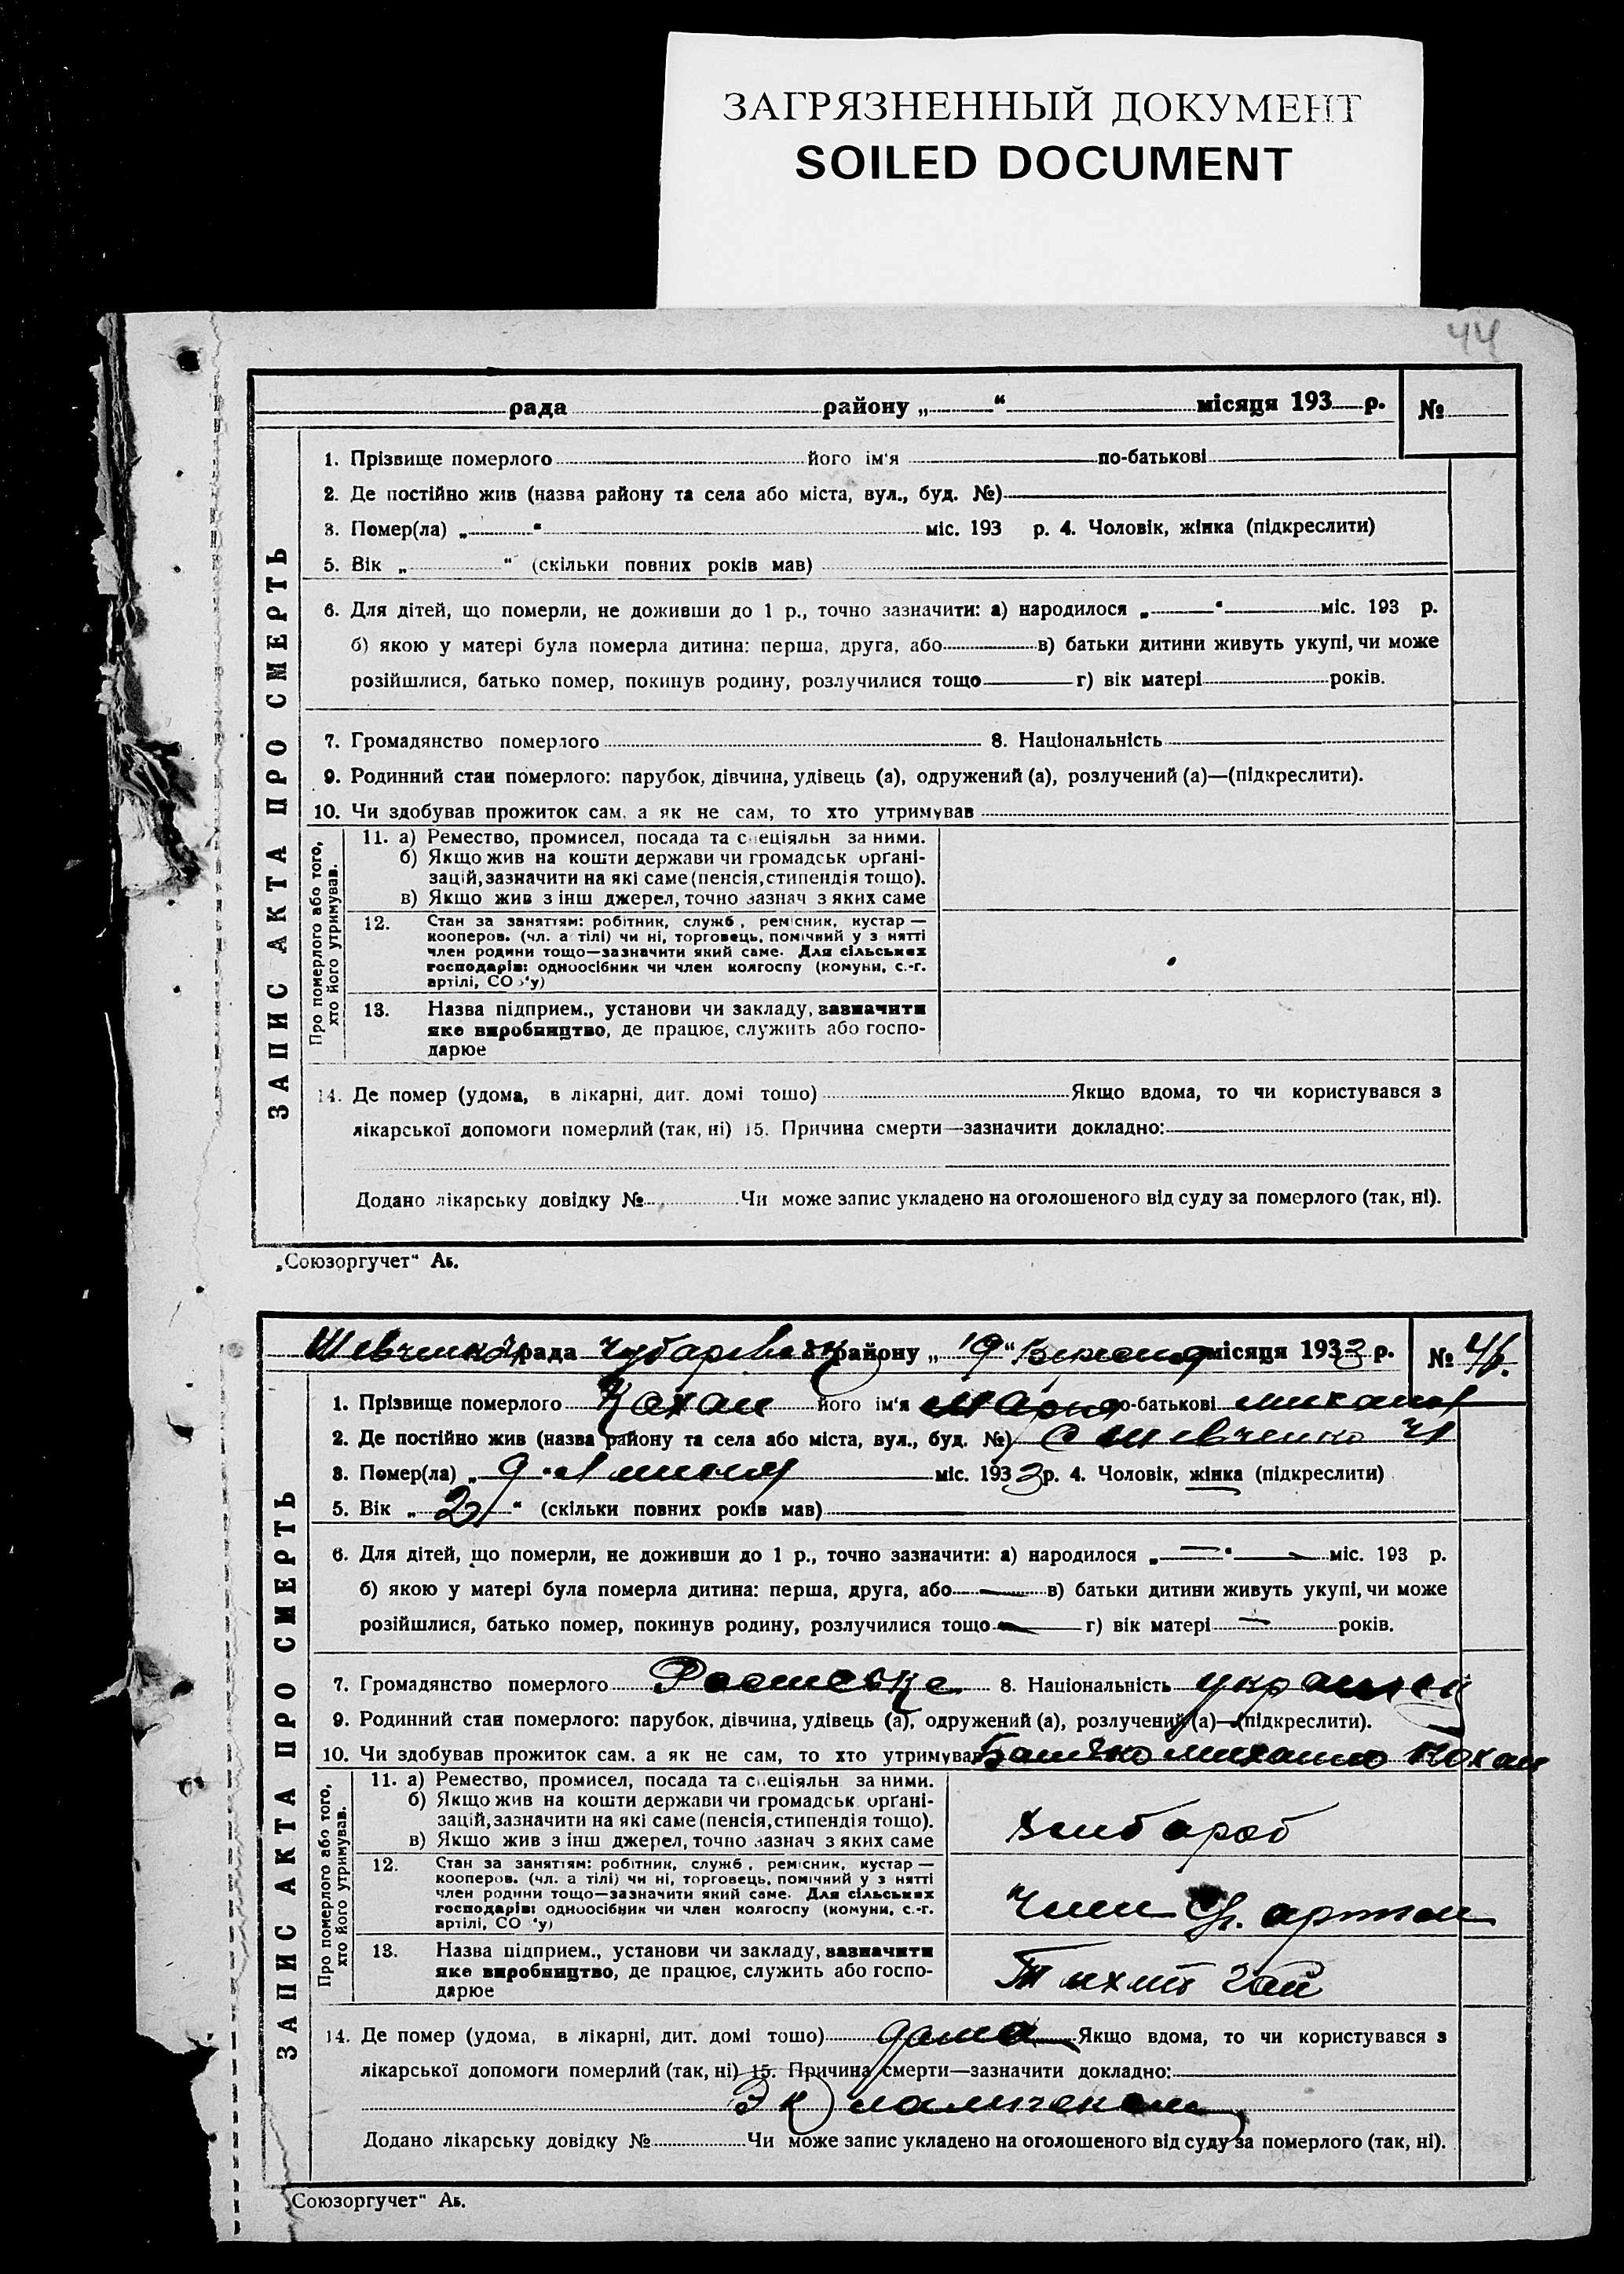 ЗАГРЯЗНЕННЫЙ ДОКУМЕНТ
SOILED DOCUMENT
44
рада району „ “ місяця 193 р. №
ЗАПИС АКТА ПРО СМЕРТЬ
1. Прізвище померлого його ім'я по-батькові
2. Де постійно жив (назва району та села або міста, вул., буд. №)
3. Помер(ла) „ “ міс. 193 р. 4. Чоловік, жінка (підкреслити)
5. Вік „ “ (скільки повних років мав)
6. Для дітей, що померли, не доживши до 1 р., точно зазначити: а) народилося „ “ міс. 193 р.
б) якою у матері була померла дитина: перша, друга, або в) батьки дитини живуть укупі, чи може
розійшлися, батько помер, покинув родину, розлучилися тощо г) вік матері років.
7. Громадянство померлого 8. Національність
9. Родинний стан померлого: парубок, дівчина, удівець (а), одружений (а), розлучений (а)—(підкреслити).
10. Чи здобував прожиток сам, а як не сам, то хто утримував
Про померлого або того, хто його утримував.
11. а) Ремество, промисел, посада та спеціяльн за ними.
б) Якщо жив на кошти держави чи громадськ органі-
зацій, зазначити на які саме (пенсія, стипендія тощо).
в) Якщо жив з інш джерел, точно зазнач з яких саме
12. Стан за заняттям: робітник, служб, ремісник, кустар —
кооперов. (чл. а тілі) чи ні, торговець, помічний у з нятті
член родини тощо—зазначити який саме. Для сільських
господарів: одноосібник чи член колгоспу (комуни, с.-г.
артілі, СО 'у)
13. Назва підприєм., установи чи закладу, зазначити
яке виробництво, де працює, служить або госпо-
дарює
14. Де помер (удома, в лікарні, дит. домі тощо) Якщо вдома, то чи користувався з
лікарської допомоги померлий (так, ні) 15. Причина смерти—зазначити докладно:
Додано лікарську довідку № Чи може запис укладено на оголошеного від суду за померлого (так, ні).
„Союзоргучет“ Аб.
рада району „19“ Вересня місяця 1933 р. №
ЗАПИС АКТА ПРО СМЕРТЬ
1. Прізвище померлого Кохан його ім'я Марія по-батькові михайл
2. Де постійно жив (назва району та села або міста, вул., буд. №) с Шевченко
3. Помер(ла) „9“ липня міс. 1933 р. 4. Чоловік, жінка (підкреслити)
5. Вік „2“ (скільки повних років мав)
6. Для дітей, що померли, не доживши до 1 р., точно зазначити: а) народилося „—“ — міс. 193 р.
б) якою у матері була померла дитина: перша, друга, або — в) батьки дитини живуть укупі, чи може
розійшлися, батько помер, покинув родину, розлучилися тощо — г) вік матері — років.
7. Громадянство померлого 8. Національність
9. Родинний стан померлого: парубок, дівчина, удівець (а), одружений (а), розлучений (а)—(підкреслити).
10. Чи здобував прожиток сам, а як не сам, то хто утримував Батько михайло Кохан
Про померлого або того, хто його утримував.
11. а) Ремество, промисел, посада та спеціяльн за ними.
б) Якщо жив на кошти держави чи громадськ органі-
зацій, зазначити на які саме (пенсія, стипендія тощо).
в) Якщо жив з інш джерел, точно зазнач з яких саме
хлібороб
12. Стан за заняттям: робітник, служб, ремісник, кустар —
кооперов. (чл. а тілі) чи ні, торговець, помічний у з нятті
член родини тощо—зазначити який саме. Для сільських
господарів: одноосібник чи член колгоспу (комуни, с.-г.
артілі, СО 'у)
член артілі
13. Назва підприєм., установи чи закладу, зазначити
яке виробництво, де працює, служить або госпо-
дарює
Тихий Гай
14. Де помер (удома, в лікарні, дит. домі тощо) дома Якщо вдома, то чи користувався з
лікарської допомоги померлий (так, ні) 15. Причина смерти—зазначити докладно:
Додано лікарську довідку № Чи може запис укладено на оголошеного від суду за померлого (так, ні).
Союзоргучет“ Аб.